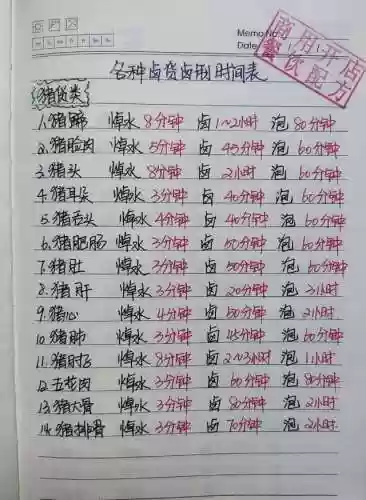 Memo No.
Date
商用开店
餐饮配方
各种卤货卤制时间表
猪货类
1.猪蹄 焯水 8分钟 卤 1~2小时 泡 80分钟
2.猪脸肉 焯水 5分钟 卤 45分钟 泡 60分钟
3.猪头 焯水 8分钟 卤 2小时 泡 60分钟
4.猪耳朵 焯水 3分钟 卤 40分钟 泡 60分钟
5.猪舌头 焯水 4分钟 卤 40分钟 泡 60分钟
6.猪肥肠 焯水 3分钟 卤 50分钟 泡 60分钟
7.猪肚 焯水 3分钟 卤 50分钟 泡 60分钟
8.猪肝 焯水 3分钟 卤 20分钟 泡 3小时
9.猪心 焯水 4分钟 卤 50分钟 泡 2小时
10.猪肺 焯水 3分钟 卤 45分钟 泡 60分钟
11.猪肘子 焯水 8分钟 卤 2~3小时 泡 1小时
12.五花肉 焯水 3分钟 卤 60分钟 泡 80分钟
13.猪大骨 焯水 3分钟 卤 80分钟 泡 2小时
14.猪排骨 焯水 3分钟 卤 70分钟 泡 2小时